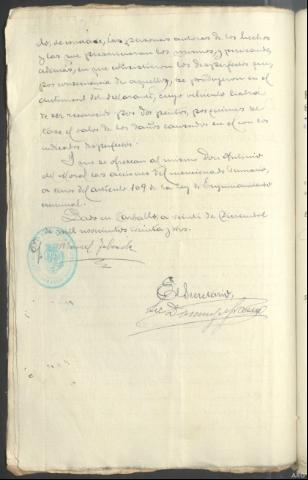 las personas autoras de los hechos
y las que presenciaron los mismos, y procurando
además, en que consistieron los desperfectos que,
por consecuencia de aquellos, se produjeron en el
automovil del declarante, cuyo vehiculo habrá
de ser reconocido por dos peritos, por quienes se
tase el valor de los daños causados en el con los
indicados desperfectos.
Y que se ofrezcan al mismo Don Antonio
del Moral las acciones del mencionado sumario,
a tenor del articulo 109 de la Ley de Enjuiciamiento
criminal.
Dado en Carballo, a veinte de Diciembre
de mil novecientos treinta y dos.
Manuel
El Secretario,